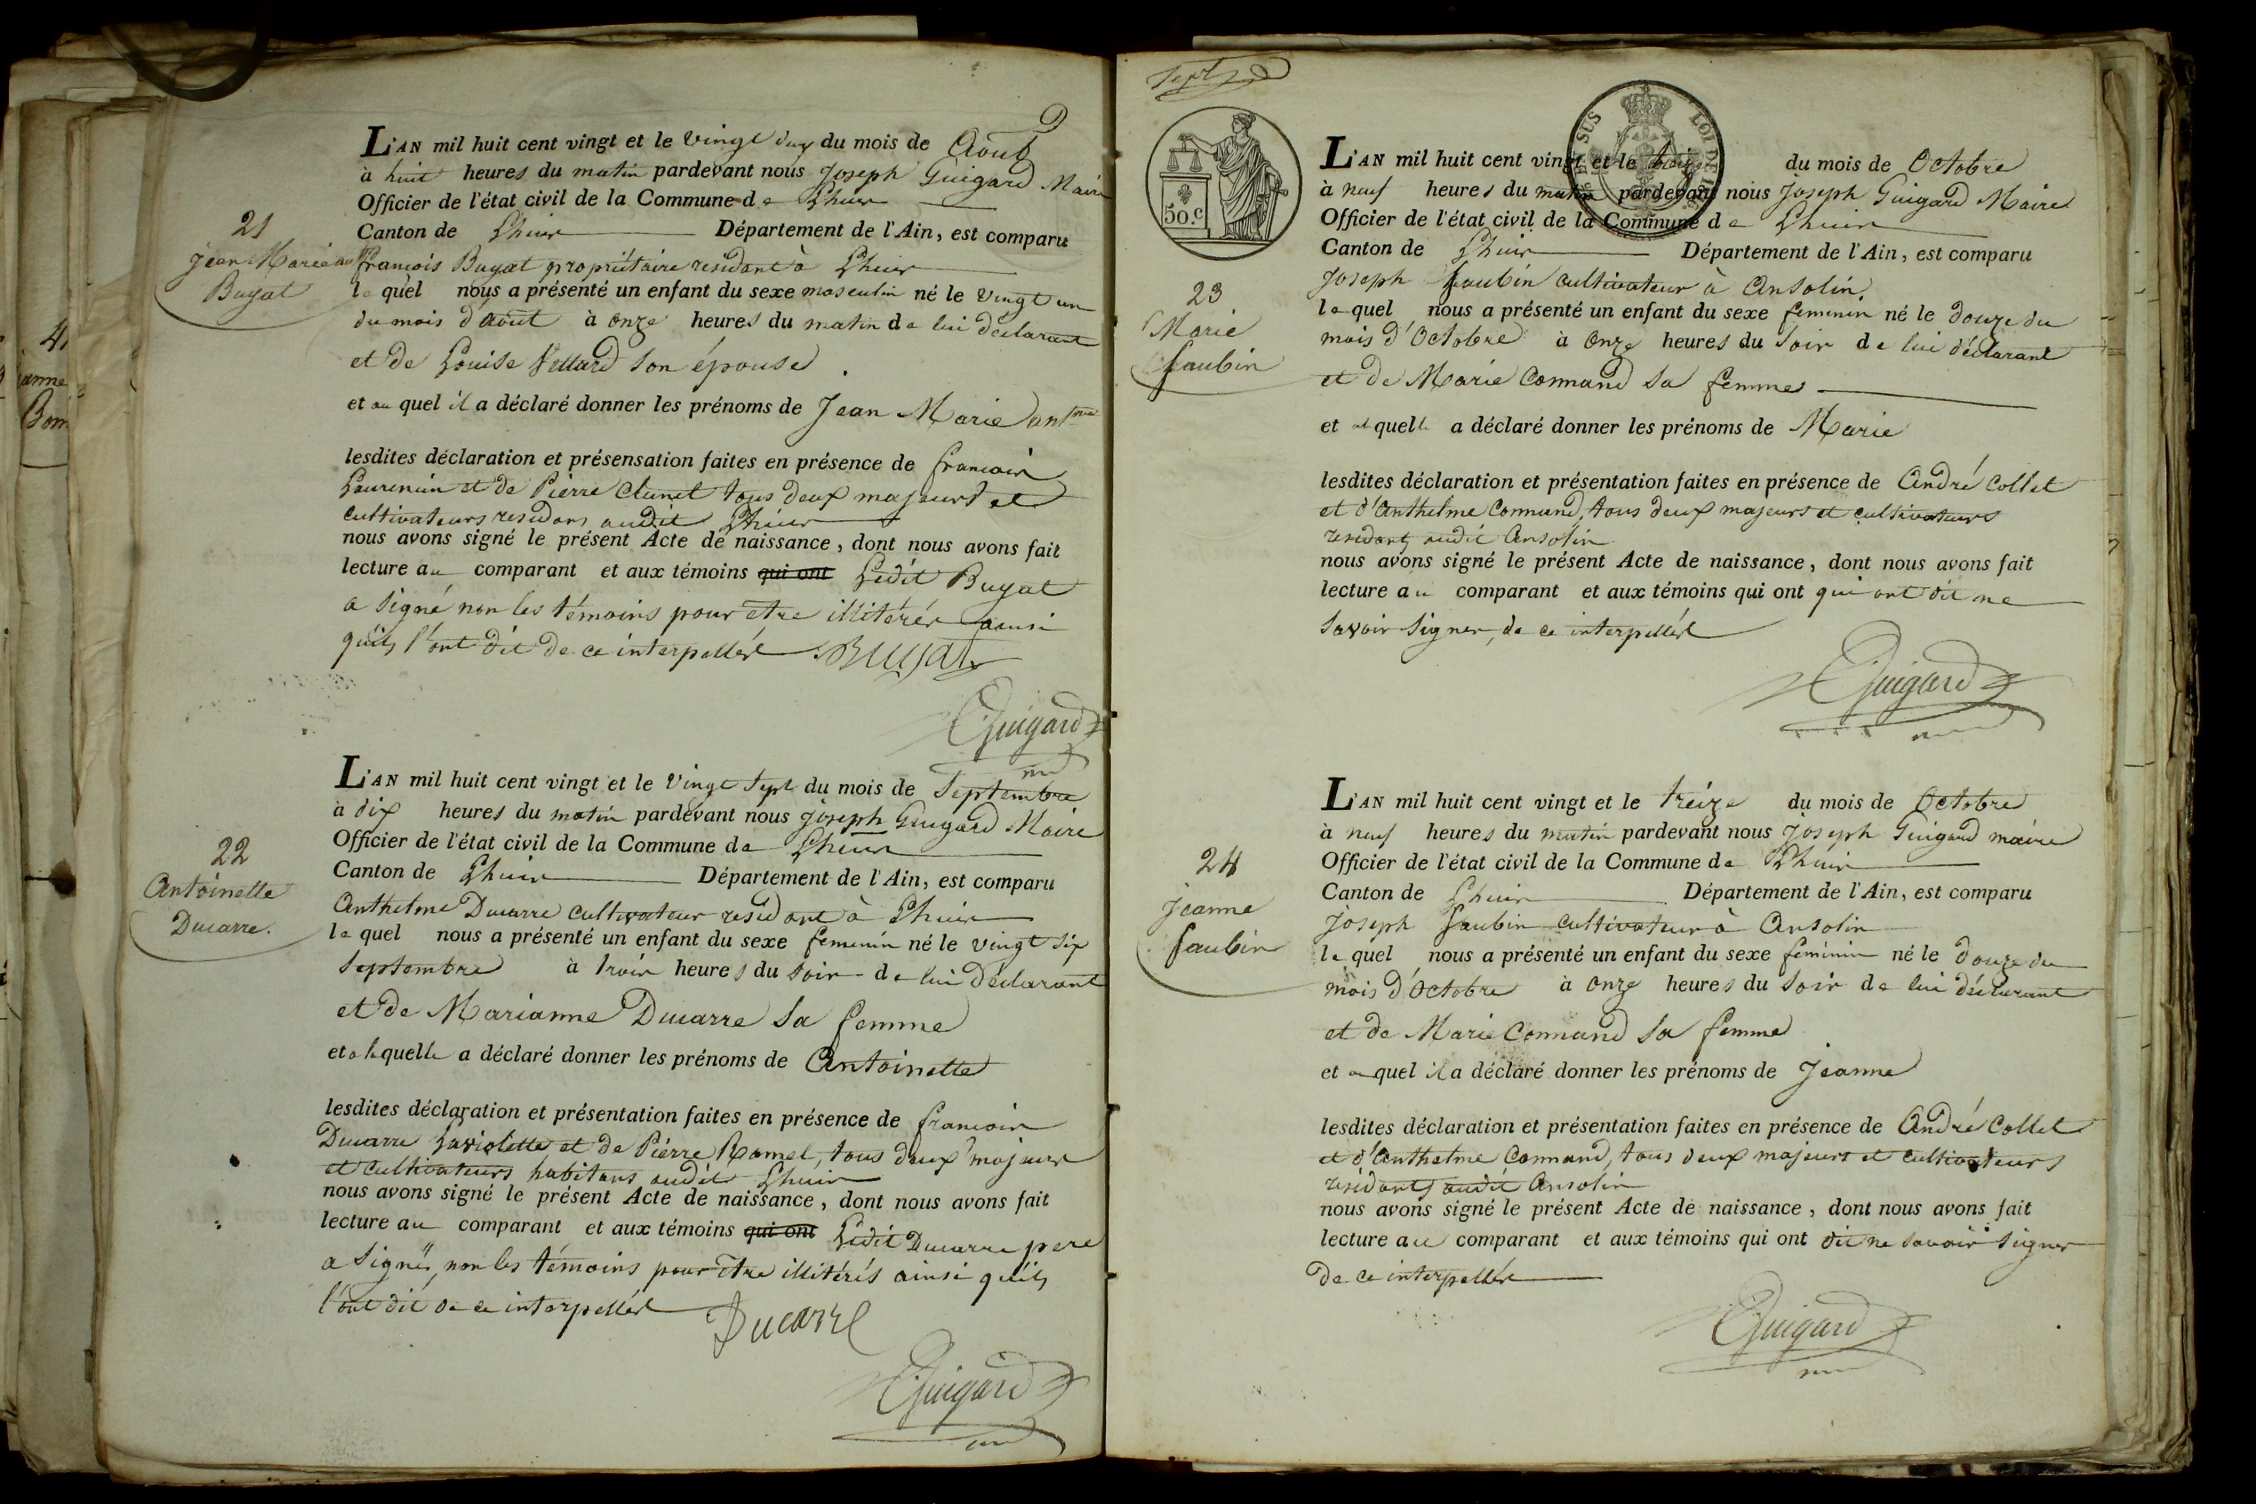 21
Jean Marie
Bugat
L'AN mil huit cent vingt et le vingt deux du mois de Aout
à huit heures du matin pardevant nous Joseph Guigard Maire
Officier de l'état civil de la Commune de Lhuir
Canton de Lhuir Département de l'Ain, est comparu
françois Bugat propriétaire residant à Lhuir
le quel nous a présenté un enfant du sexe masculin né le vingt un
du mois d'aout à onze heures du matin de lui déclarant
et de Louise Vettard son épouse
et au quel il a déclaré donner les prénoms de Jean Marie
lesdites déclaration et présensation faites en présence de francois
Laurencin et de Pierre Clunet tous deux majeurs et
cultivateurs residans audit Lhuir
nous avons signé le présent Acte de naissance, dont nous avons fait
lecture au comparant et aux témoins qui ont Ledit Bugat
a signé non les témoins pour etre illitérés ainsi
qu'ils l'ont dit de ce interpellés Bugat
Guigard
22
Antoinette
Ducarre.
L'AN mil huit cent vingt et le vingt sept du mois de Septembre
à dix heures du matin pardevant nous joseph Guigard Maire
Officier de l'état civil de la Commune de Lhuir
Canton de Lhuir Département de l'Ain, est comparu
Anthelme Ducarre cultivateur residant à Lhuir
le quel nous a présenté un enfant du sexe femenin né le vingt six
septembre à trois heures du soir de lui déclarant
et de Marianne Ducarre sa femme
et a laquelle a déclaré donner les prénoms de Antoinette
lesdites déclaration et présentation faites en présence de francois
Ducarre Laviolette et de Pierre Ramel, tous deux majeurs
et cultivateurs habitans audit Lhuir
nous avons signé le présent Acte de naissance, dont nous avons fait
lecture au comparant et aux témoins qui ont Ledit Ducarre pere
a signé, non les témoins pour etre illitérés ainsi qu'ils
l'ont dit de ce interpellés Ducarre
Guigard
Sept
50.C
23
Marie
faubin
L'AN mil huit cent vingt et le treize du mois de Octobre
à neuf heures du matin pardevant nous Joseph Guigard Maire
Officier de l'état civil de la Commune de Lhuir
Canton de Lhuir Département de l'Ain, est comparu
Joseph faubin cultivateur à Ansolin
le quel nous a présenté un enfant du sexe femenin né le douze du
mois d'Octobre à onze heures du soir de lui déclarant
et de Marie Connand sa femme
et a quelle a déclaré donner les prénoms de Marie
lesdites déclaration et présentation faites en présence de André Collet
et d'Anthelme Connand, tous deux majeurs et cultivateurs
residants audit Ansolin
nous avons signé le présent Acte de naissance, dont nous avons fait
lecture au comparant et aux témoins qui ont qui ont dit ne
savoir signer, de ce interpellés
Guigard
24
jeanne
faubin
L'AN mil huit cent vingt et le treize du mois de Octobre
à neuf heures du matin pardevant nous Joseph Guigard maire
Officier de l'état civil de la Commune de Lhuir
Canton de Lhuir Département de l'Ain, est comparu
joseph faubin cultivateur à Ansolin
le quel nous a présenté un enfant du sexe féminin né le douze du
mois d'Octobre à onze heures du soir de lui déclarant
et de Marie Connand sa femme
et au quel il a déclaré donner les prénoms de Jeanne
lesdites déclaration et présentation faites en présence de André Collet
et d'Anthelme Connand, tous deux majeurs et cultivateurs
résidants audit Ansolin
nous avons signé le présent Acte de naissance, dont nous avons fait
lecture au comparant et aux témoins qui ont dit ne savoir signer
de ce interpellés
Guigard